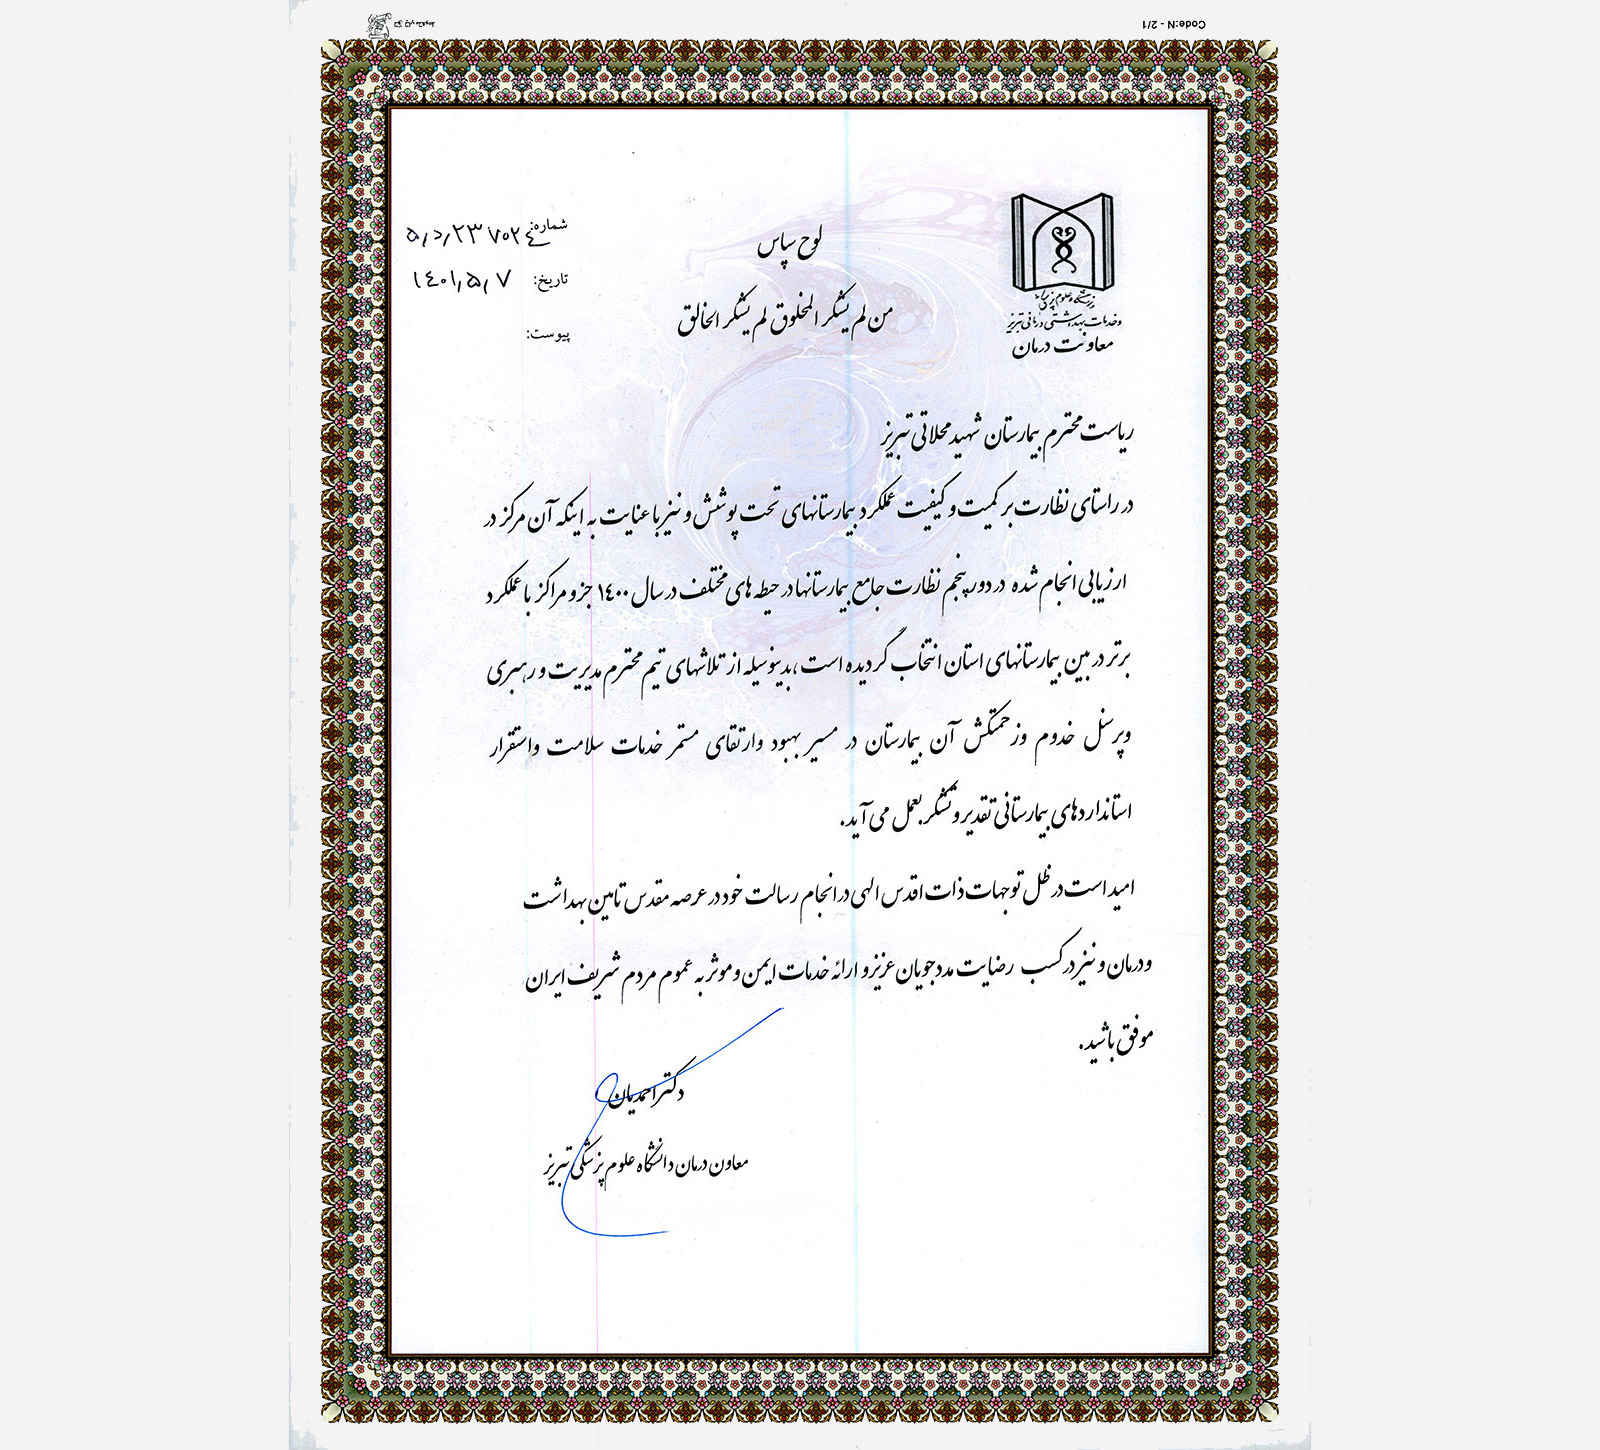 Code:N - 2/1
دانشگاه علوم پزشکی
و خدمات بهداشتی درمانی تبریز
معاونت درمان
لوح سپاس
من لم یشکر المخلوق لم یشکر الخالق
شماره:
تاریخ: ۱۴۰۱٫۵٫۷
پیوست:
ریاست محترم بیمارستان شهید محلاتی تبریز
در راستای نظارت بر کمیت و کیفیت عملکرد بیمارستانهای تحت پوشش و نیز با عنایت به اینکه آن مرکز در
ارزیابی انجام شده در دور پنجم نظارت جامع بیمارستانها در حیطه های مختلف در سال ۱۴۰۰ جزو مراکز با عملکرد
برتر در بین بیمارستانهای استان انتخاب گردیده است ،بدینوسیله از تلاشهای تیم محترم مدیریت و رهبری
و پرسنل خدوم و زحمتکش آن بیمارستان در مسیر بهبود و ارتقای مستمر خدمات سلامت و استقرار
استانداردهای بیمارستانی تقدیر و تشکر بعمل می آید.
امید است در ظل توجهات ذات اقدس الهی در انجام رسالت خود در عرصه مقدس تامین بهداشت
و درمان و نیز در کسب رضایت مددجویان عزیز و ارائه خدمات ایمن و موثر به عموم مردم شریف ایران
موفق باشید.
دکتر احمدیان
معاون درمان دانشگاه علوم پزشکی تبریز